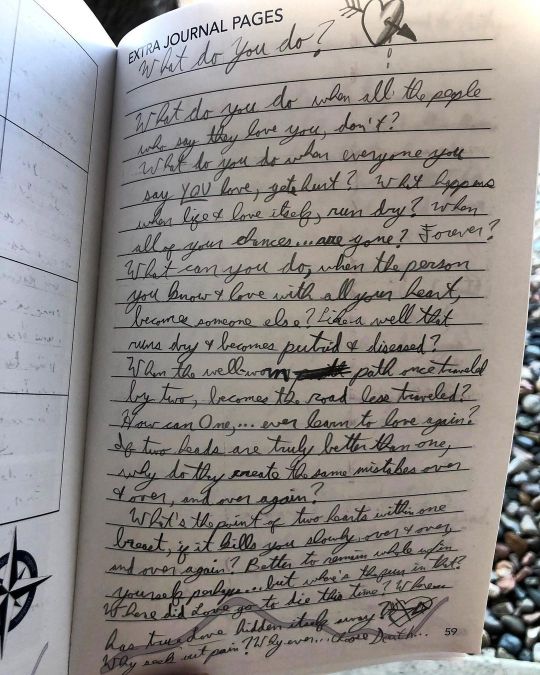 EXTRA JOURNAL PAGES
What do You do?
What do you do when all the people
who say they love you, don't?
What do you do when everyone you
say YOU love, gets hurt? What happens
when life & love itself, run dry? When
all of your chances... are gone? Forever?
What can you do, when the person
you know & love with all your heart,
becomes someone else? Like a well that
runs dry & becomes putrid & diseased?
When the well-worn path once traveled
by two, becomes the road less traveled?
How can One,... ever learn to love again?
If two heads are truly better than one,
why do they create the same mistakes over
& over, and over again?
What's the point of two hearts within one
breast, if it kills you slowly, over & over
and over again? Better to remain whole w/in
yourself perhaps... but where's the fun in that?
Where did Love go to die this time? Where
has true love hidden itself away
Why seek out pain? Why ever... choose Death...
59